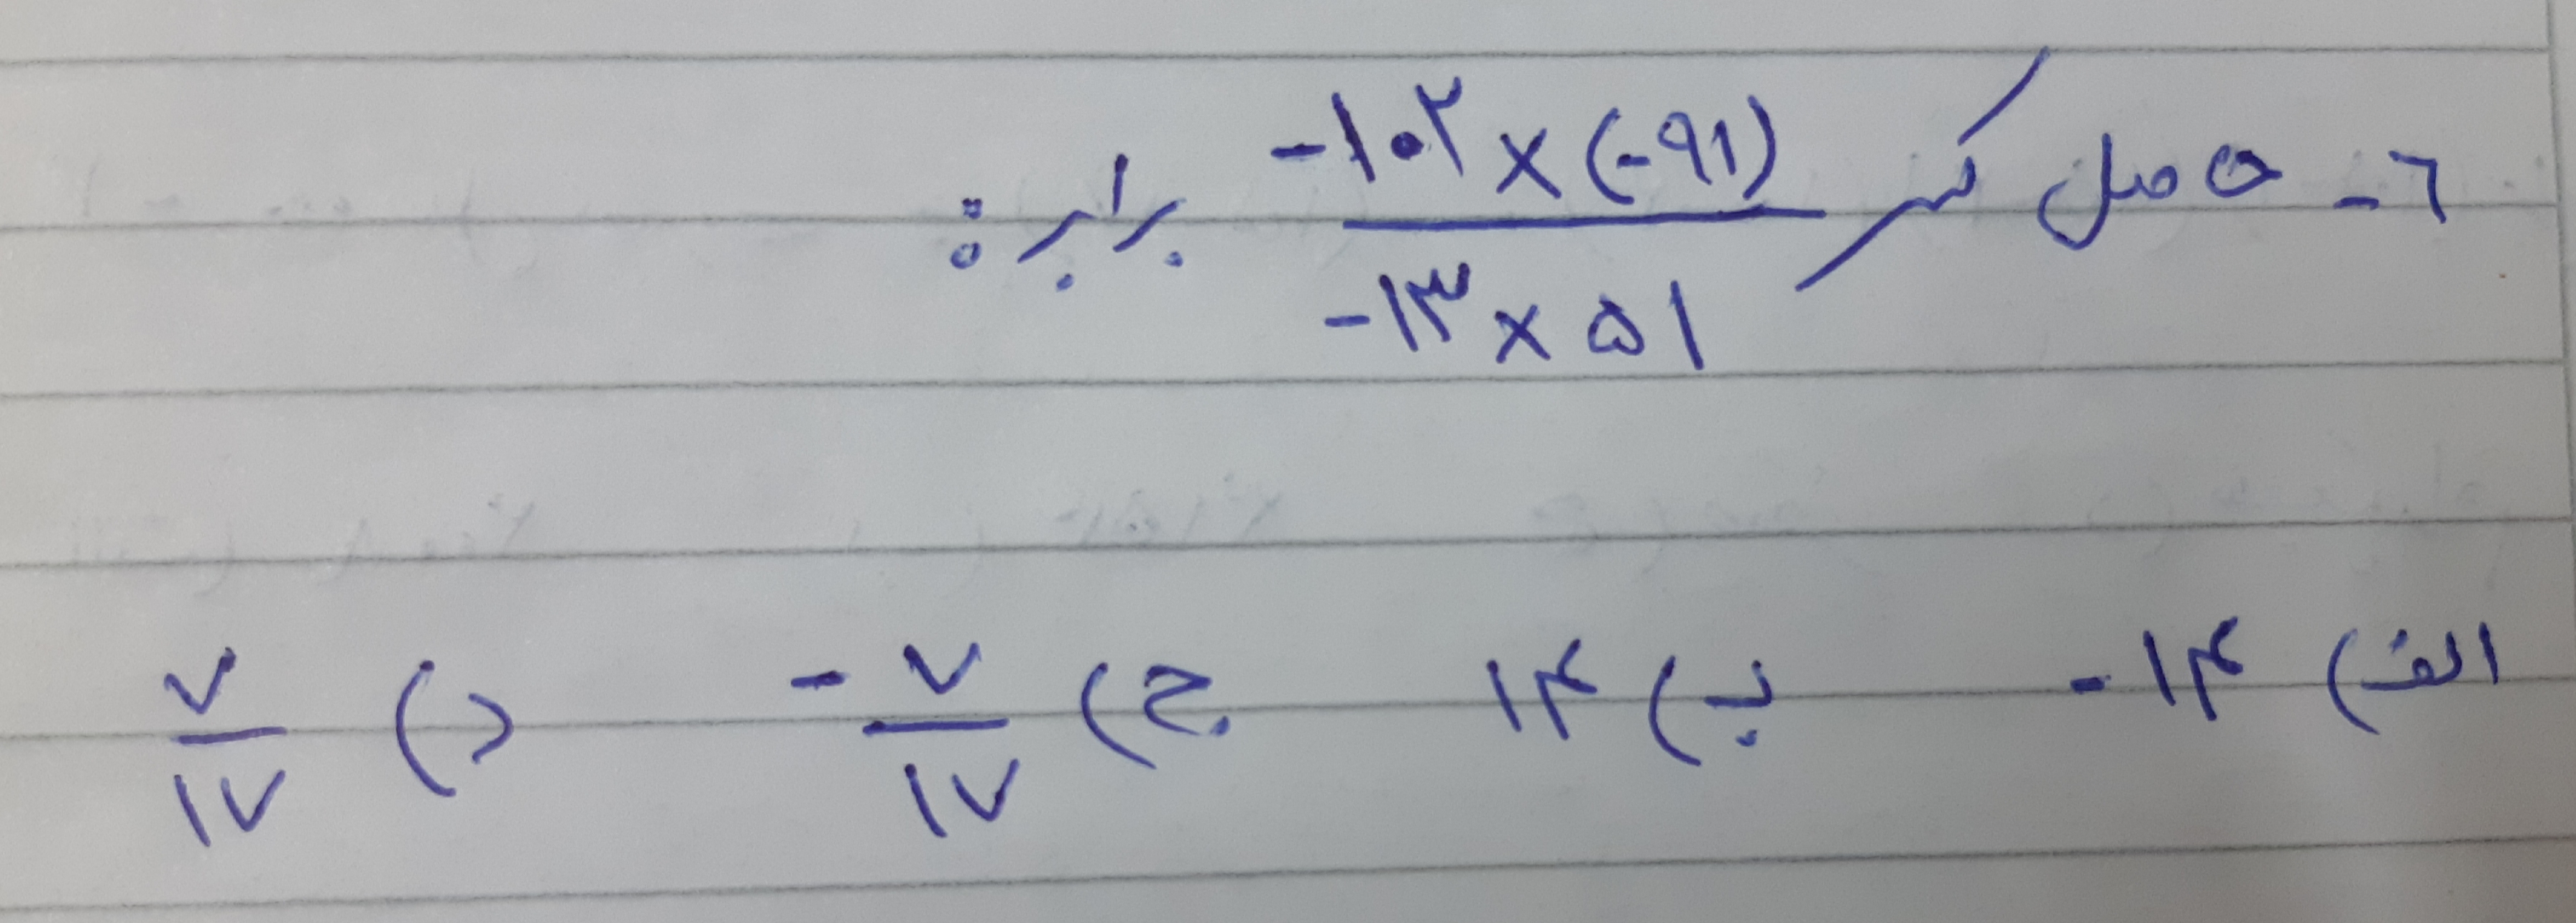 ٦- حاصل کسر (-۱۰۲ × (-۹۱)) / (-۱۳ × ۵۱) برابر:
الف) -۱۴ ب) ۱۴ ج) -۷/۱۷ د) ۷/۱۷